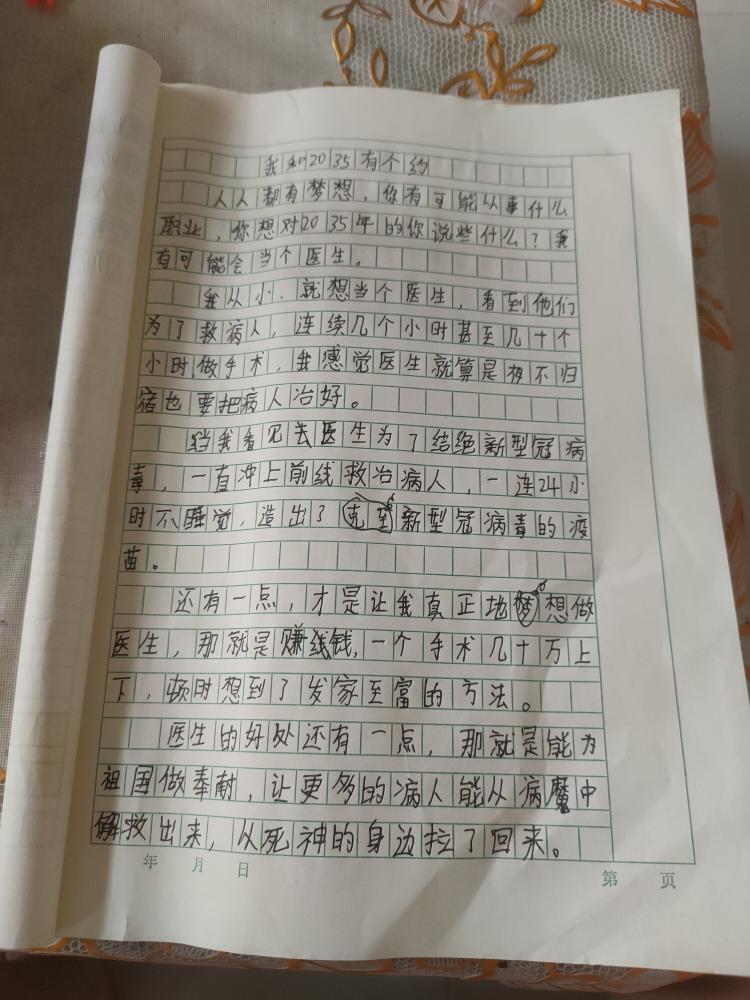 我和2035有个约
人人都有梦想，你有可能从事什么
职业，你想对2035年的你说些什么？我
有可能会当个医生。
我从小，就想当个医生，看到他们
为了救病人，连续几个小时甚至几十个
小时做手术，我感觉医生就算是夜不归
宿也要把病人治好。
当我看见去医生为了结绝新型冠病
毒，一直冲上前线救治病人，一连24小
时不睡觉，造出了新型冠病毒的疫
苗。
还有一点，才是让我真正地想做
医生，那就是赚钱，一个手术几十万上
下，顿时想到了发家至富的方法。
医生的好处还有一点，那就是能为
祖国做奉献，让更多的病人能从病魔中
解救出来，从死神的身边拉了回来。
年 月 日
第 页